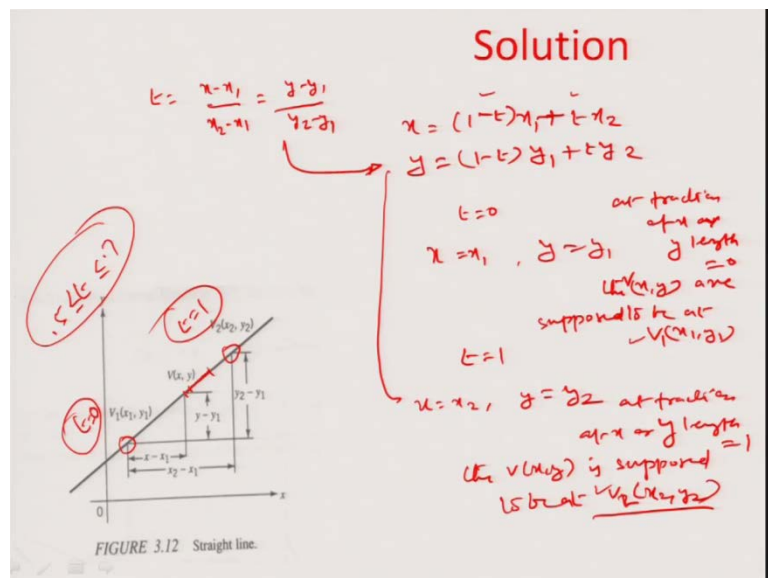 Solution
t = x-x₁ / x₂-x₁ = y-y₁ / y₂-y₁
x = (1-t)x₁ + t x₂
y = (1-t) y₁ + t y₂
t=0
at fraction
of x or
y length
=0
x = x₁ , y = y₁
the V(x,y) are
supposed to be at
V₁(x₁,y₁)
t=1
x = x₂, y = y₂ at fraction
of x or y length
=1
the V(x,y) is supposed
to be at V₂(x₂,y₂)
t=1
t=0
y
V₂(x₂, y₂)
V(x, y)
V₁(x₁, y₁)
y₂-y₁
y-y₁
x-x₁
x₂-x₁
x
0
FIGURE 3.12 Straight line.